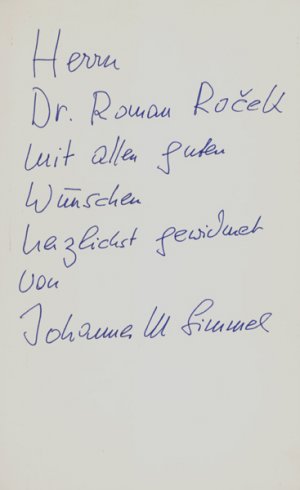 Herrn
Dr. Roman Roček
mit allen guten
Wünschen
herzlichst gewidmet
von
Johannes M Simmel